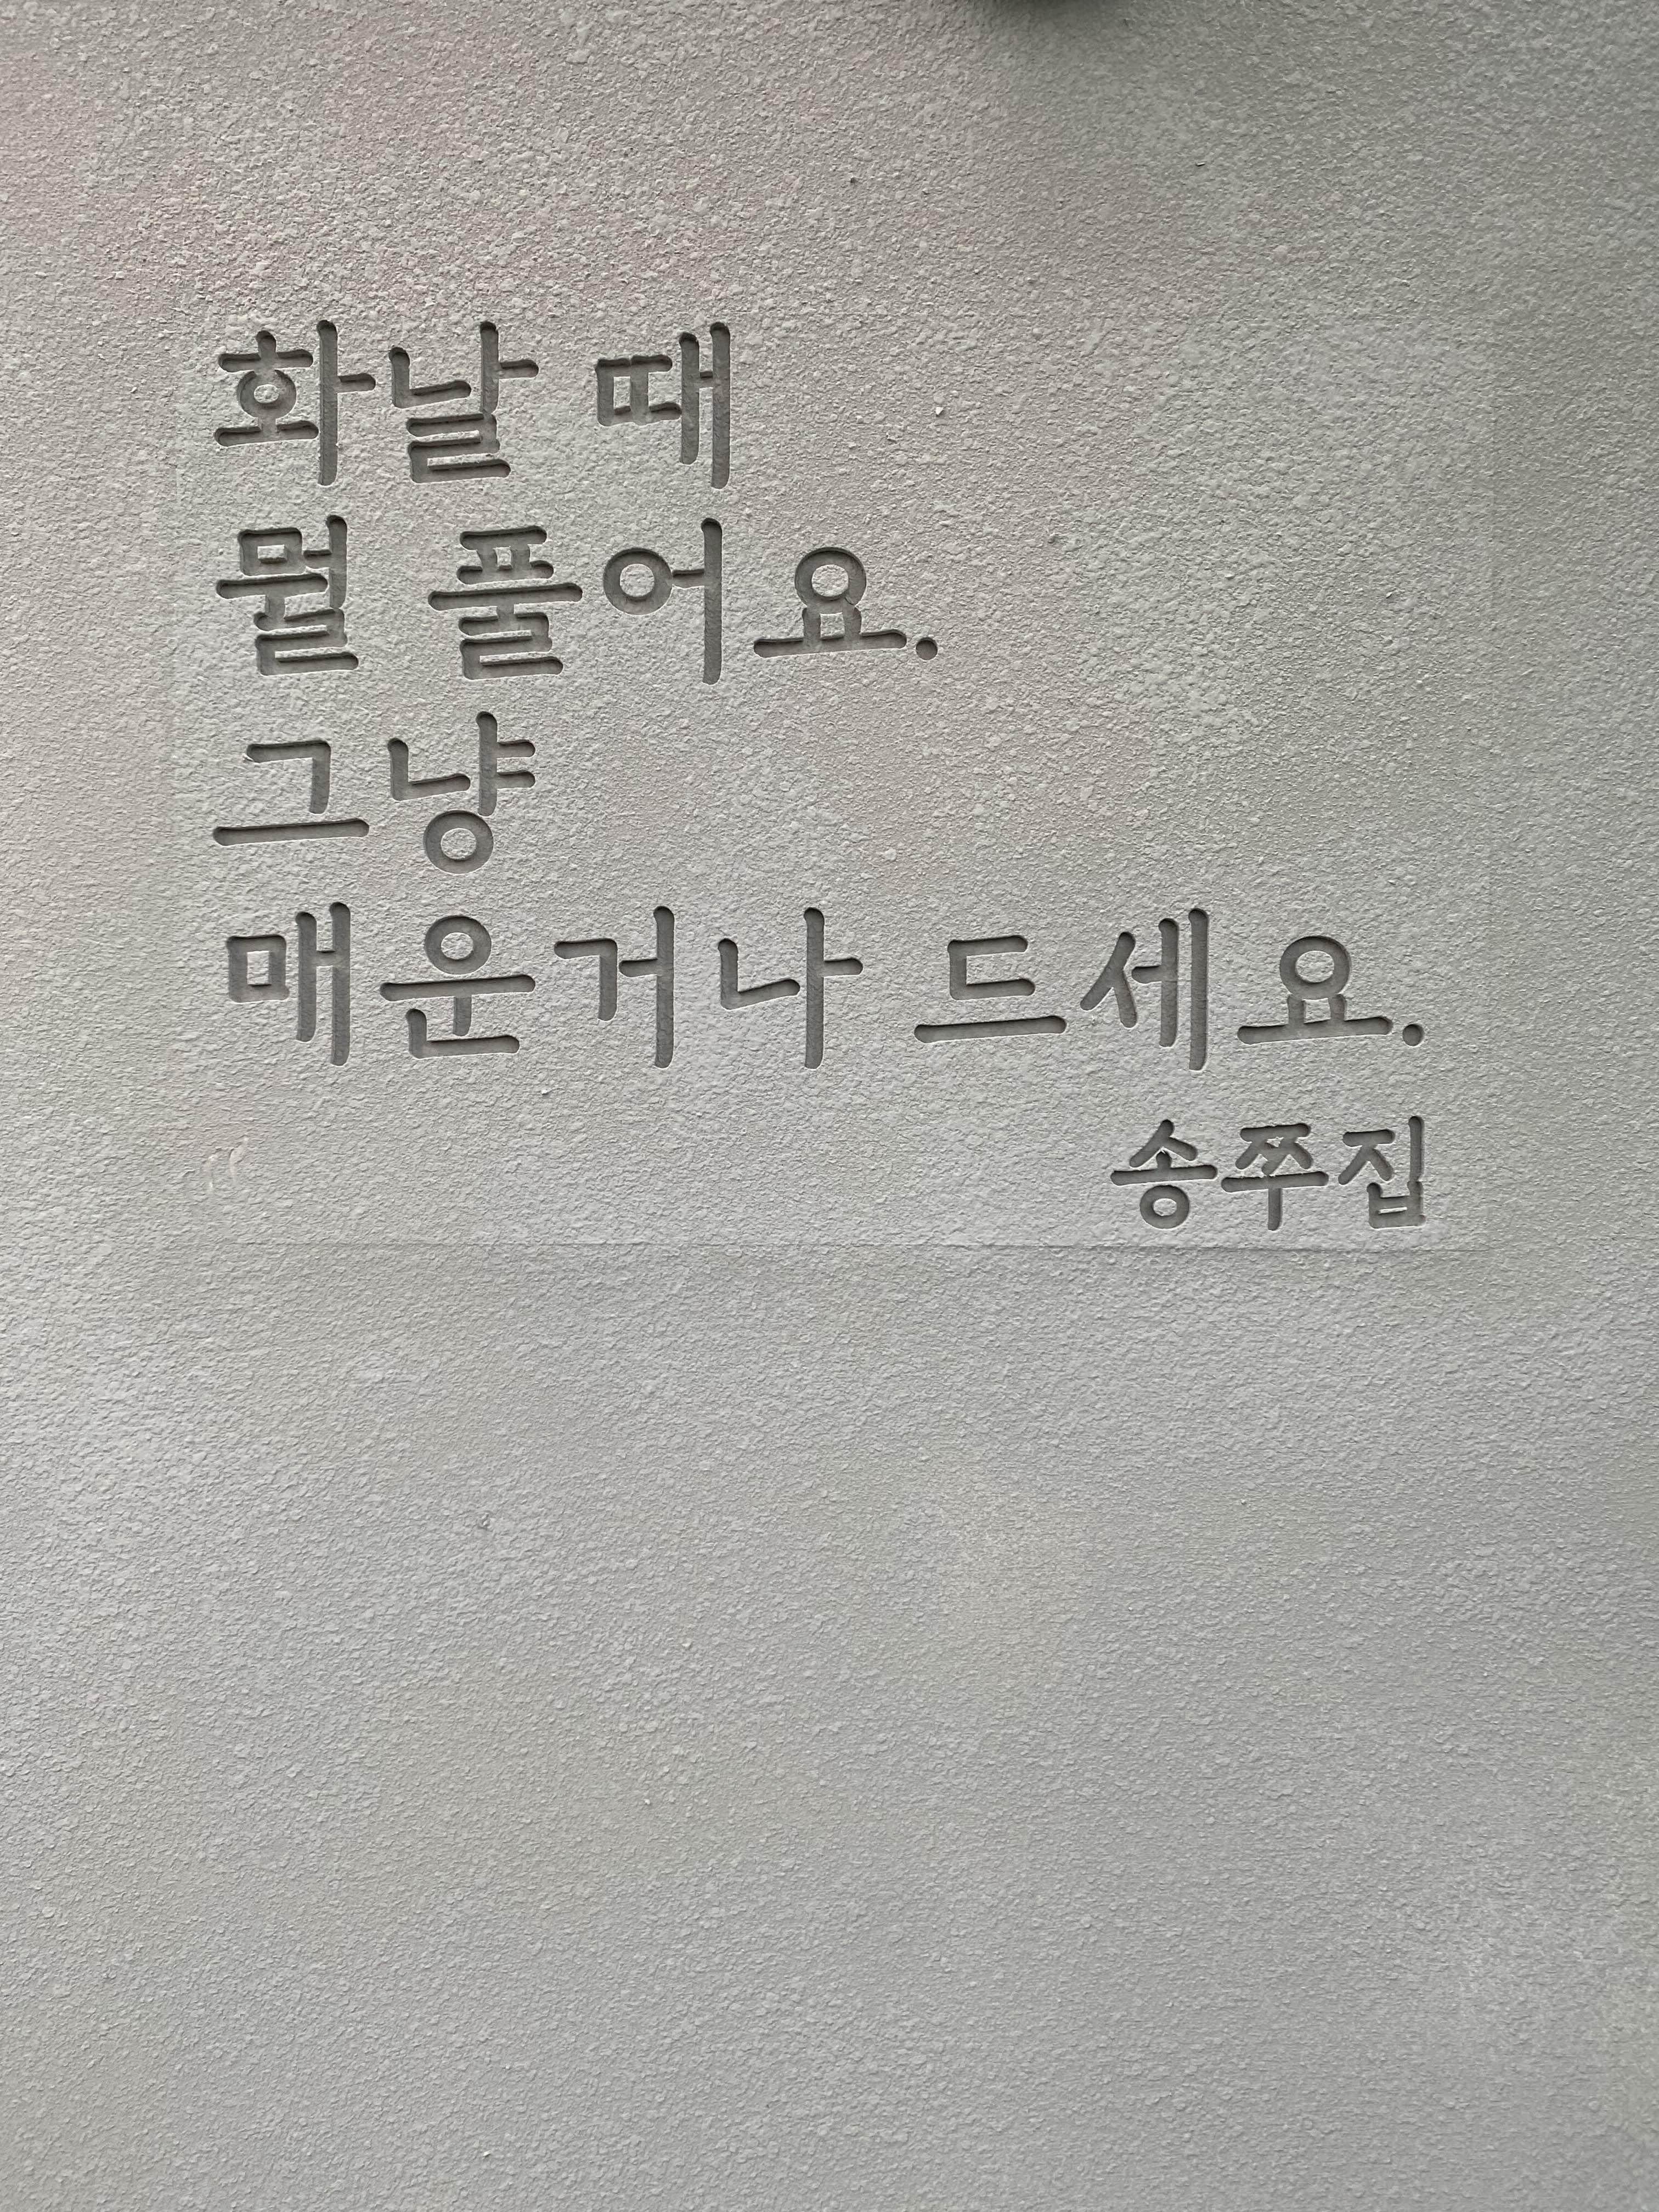 화날 때
뭘 풀어요.
그냥
매운거나 드세요.
송쭈집